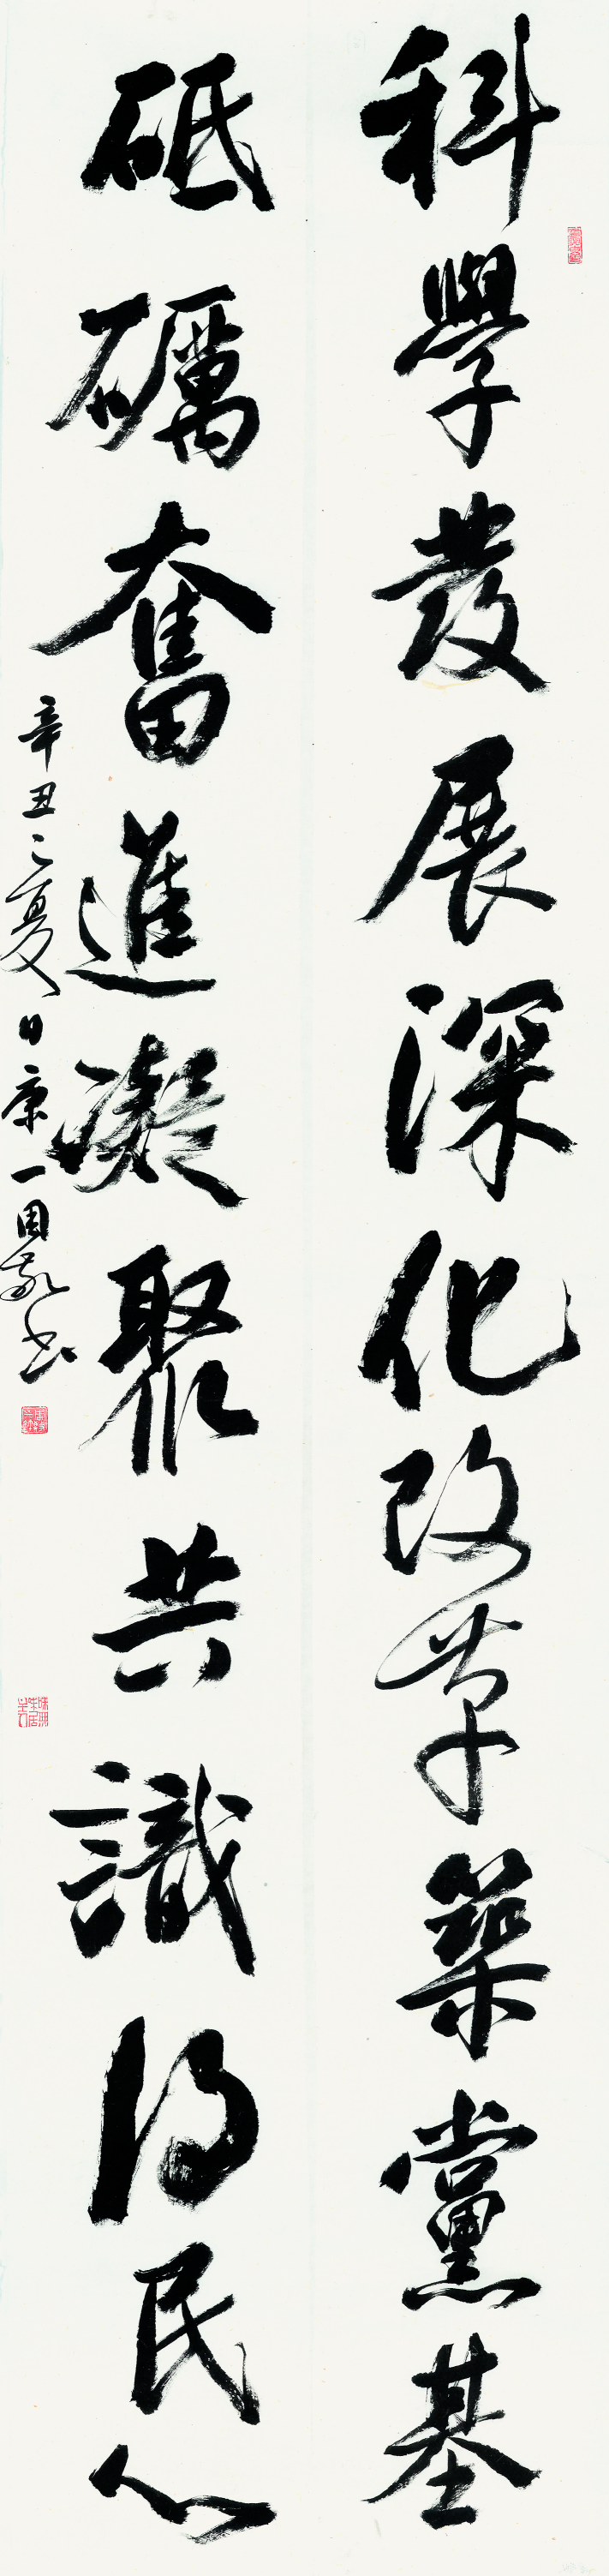 科學發展深化改革築黨基
砥礪奮進凝聚共識得民心
辛丑之夏日康一周敬書